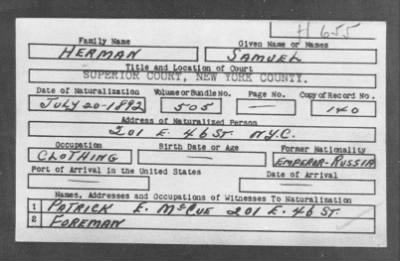 H 655
Family Name Given Name or Names
HERMAN SAMUEL
Title and Location of Court
SUPERIOR COURT, NEW YORK COUNTY.
Date of Naturalization Volume or Bundle No. Page No. Copy of Record No.
JULY 20-1892 505 — 140
Address of Naturalized Person
201 E. 46 ST. N.Y.C.
Occupation Birth Date or Age Former Nationality
CLOTHING — EMPEROR-RUSSIA
Port of Arrival in the United States Date of Arrival
— —
Names, Addresses and Occupations of Witnesses To Naturalization
1 PATRICK E. McCUE 201 E. 46 ST.
2 FOREMAN